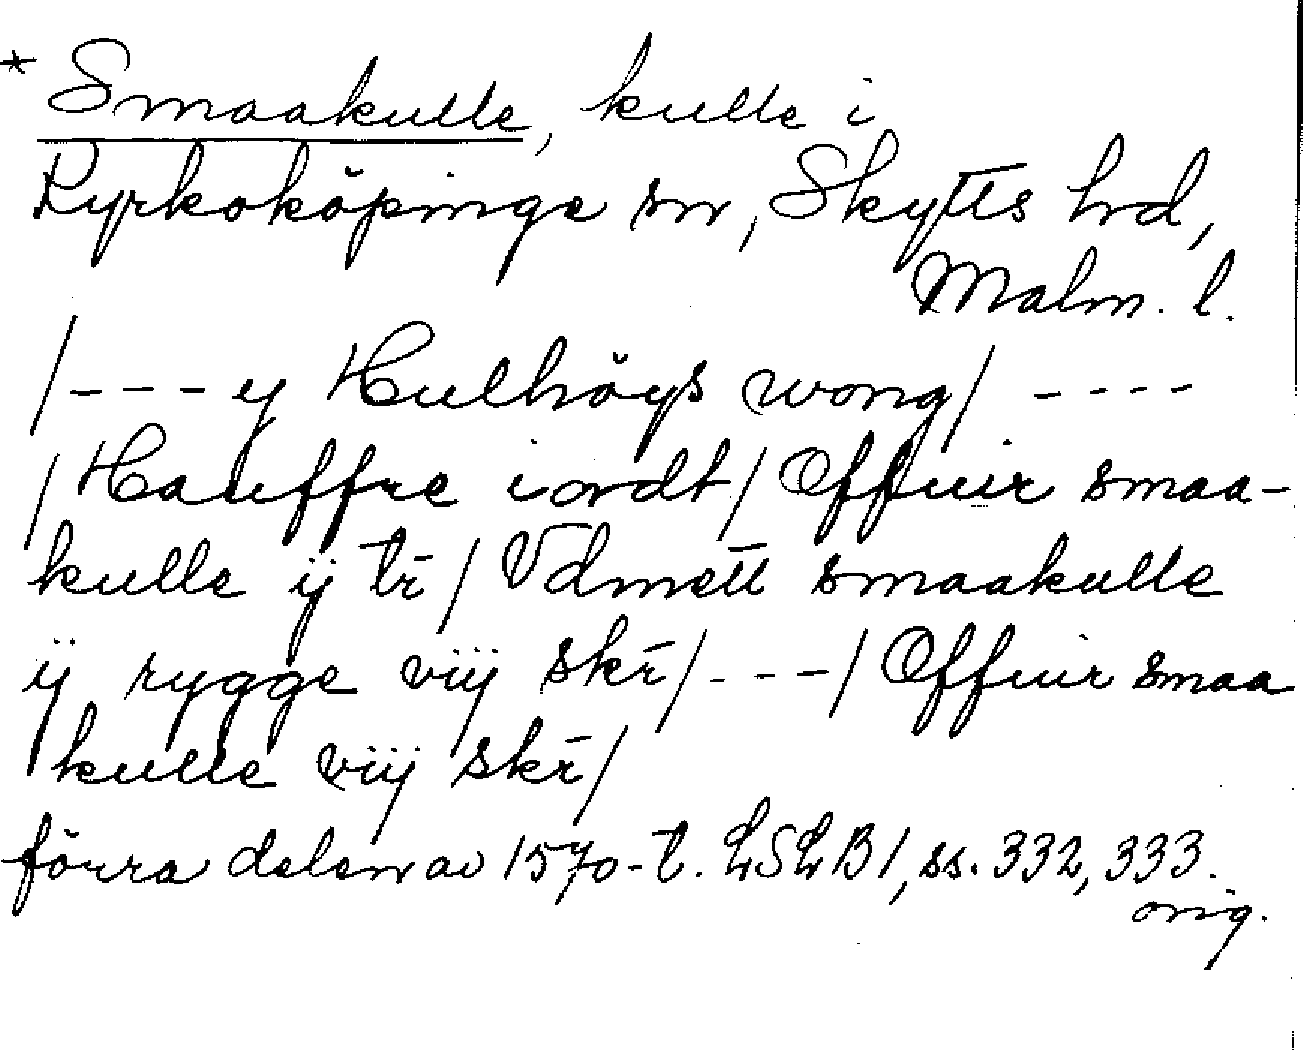 * Smaakulle, kulle i
Kyrkoköpinge sn, Skytts hrd,
Malm. l.
/- - - y Hulhöys wong/ - - - -
/Hauffre iordt/ Offuir smaa-
kulle ÿ tr̄/ Vdmett smaakulle
ÿ rygge viij skr̄/- - -/ Offuir smaa
kulle viij skr̄/
förra delen av 1570-t. LSLB1, ss. 332, 333.
orig.